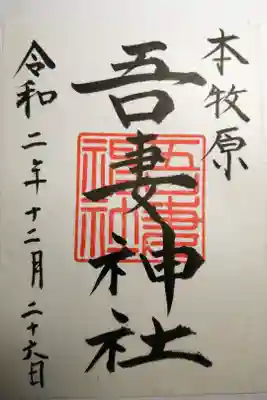 本牧原
吾妻神社
令和二年十二月二十六日
吾妻
神社